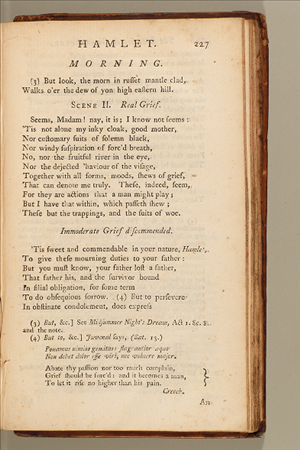 HAMLET. 227
MORNING.
(3) But look, the morn in ruſſet mantle clad,
Walks o'er the dew of yon high eaſtern hill.
SCENE II. Real Grief.
Seems, Madam! nay, it is; I know not ſeems:
'Tis not alone my inky cloak, good mother,
Nor cuſtomary ſuits of ſolemn black,
Nor windy ſuſpiration of forc'd breath,
No, nor the fruitful river in the eye,
Nor the dejected 'haviour of the viſage,
Together with all forms, moods, ſhews of grief,
That can denote me truly. Theſe, indeed, ſeem,
For they are actions that a man might play;
But I have that within, which paſſeth ſhew;
Theſe but the trappings, and the ſuits of woe.
Immoderate Grief diſcommended.
'Tis ſweet and commendable in your nature, Hamlet,
To give theſe mourning duties to your father:
But you muſt know, your father loſt a father,
That father his, and the ſurvivor bound
In filial obligation, for ſome term
To do obſequious ſorrow. (4) But to perſevere
In obſtinate condolement, does expreſs
(3) But, &c.] See Midſummer Night's Dream, Act 1. Sc. 
and the note.
(4) But to, &c.] Juvenal ſays, (Sat. 13.)
Ponamus nimios gemitus: flagrantior æquo
Non debet dolor eſſe viri, nec vulnere major.
Abate thy paſſion nor too much complain,
Grief ſhould be forc'd: and it becomes a man,
To let it riſe no higher than his pain.
Creech.